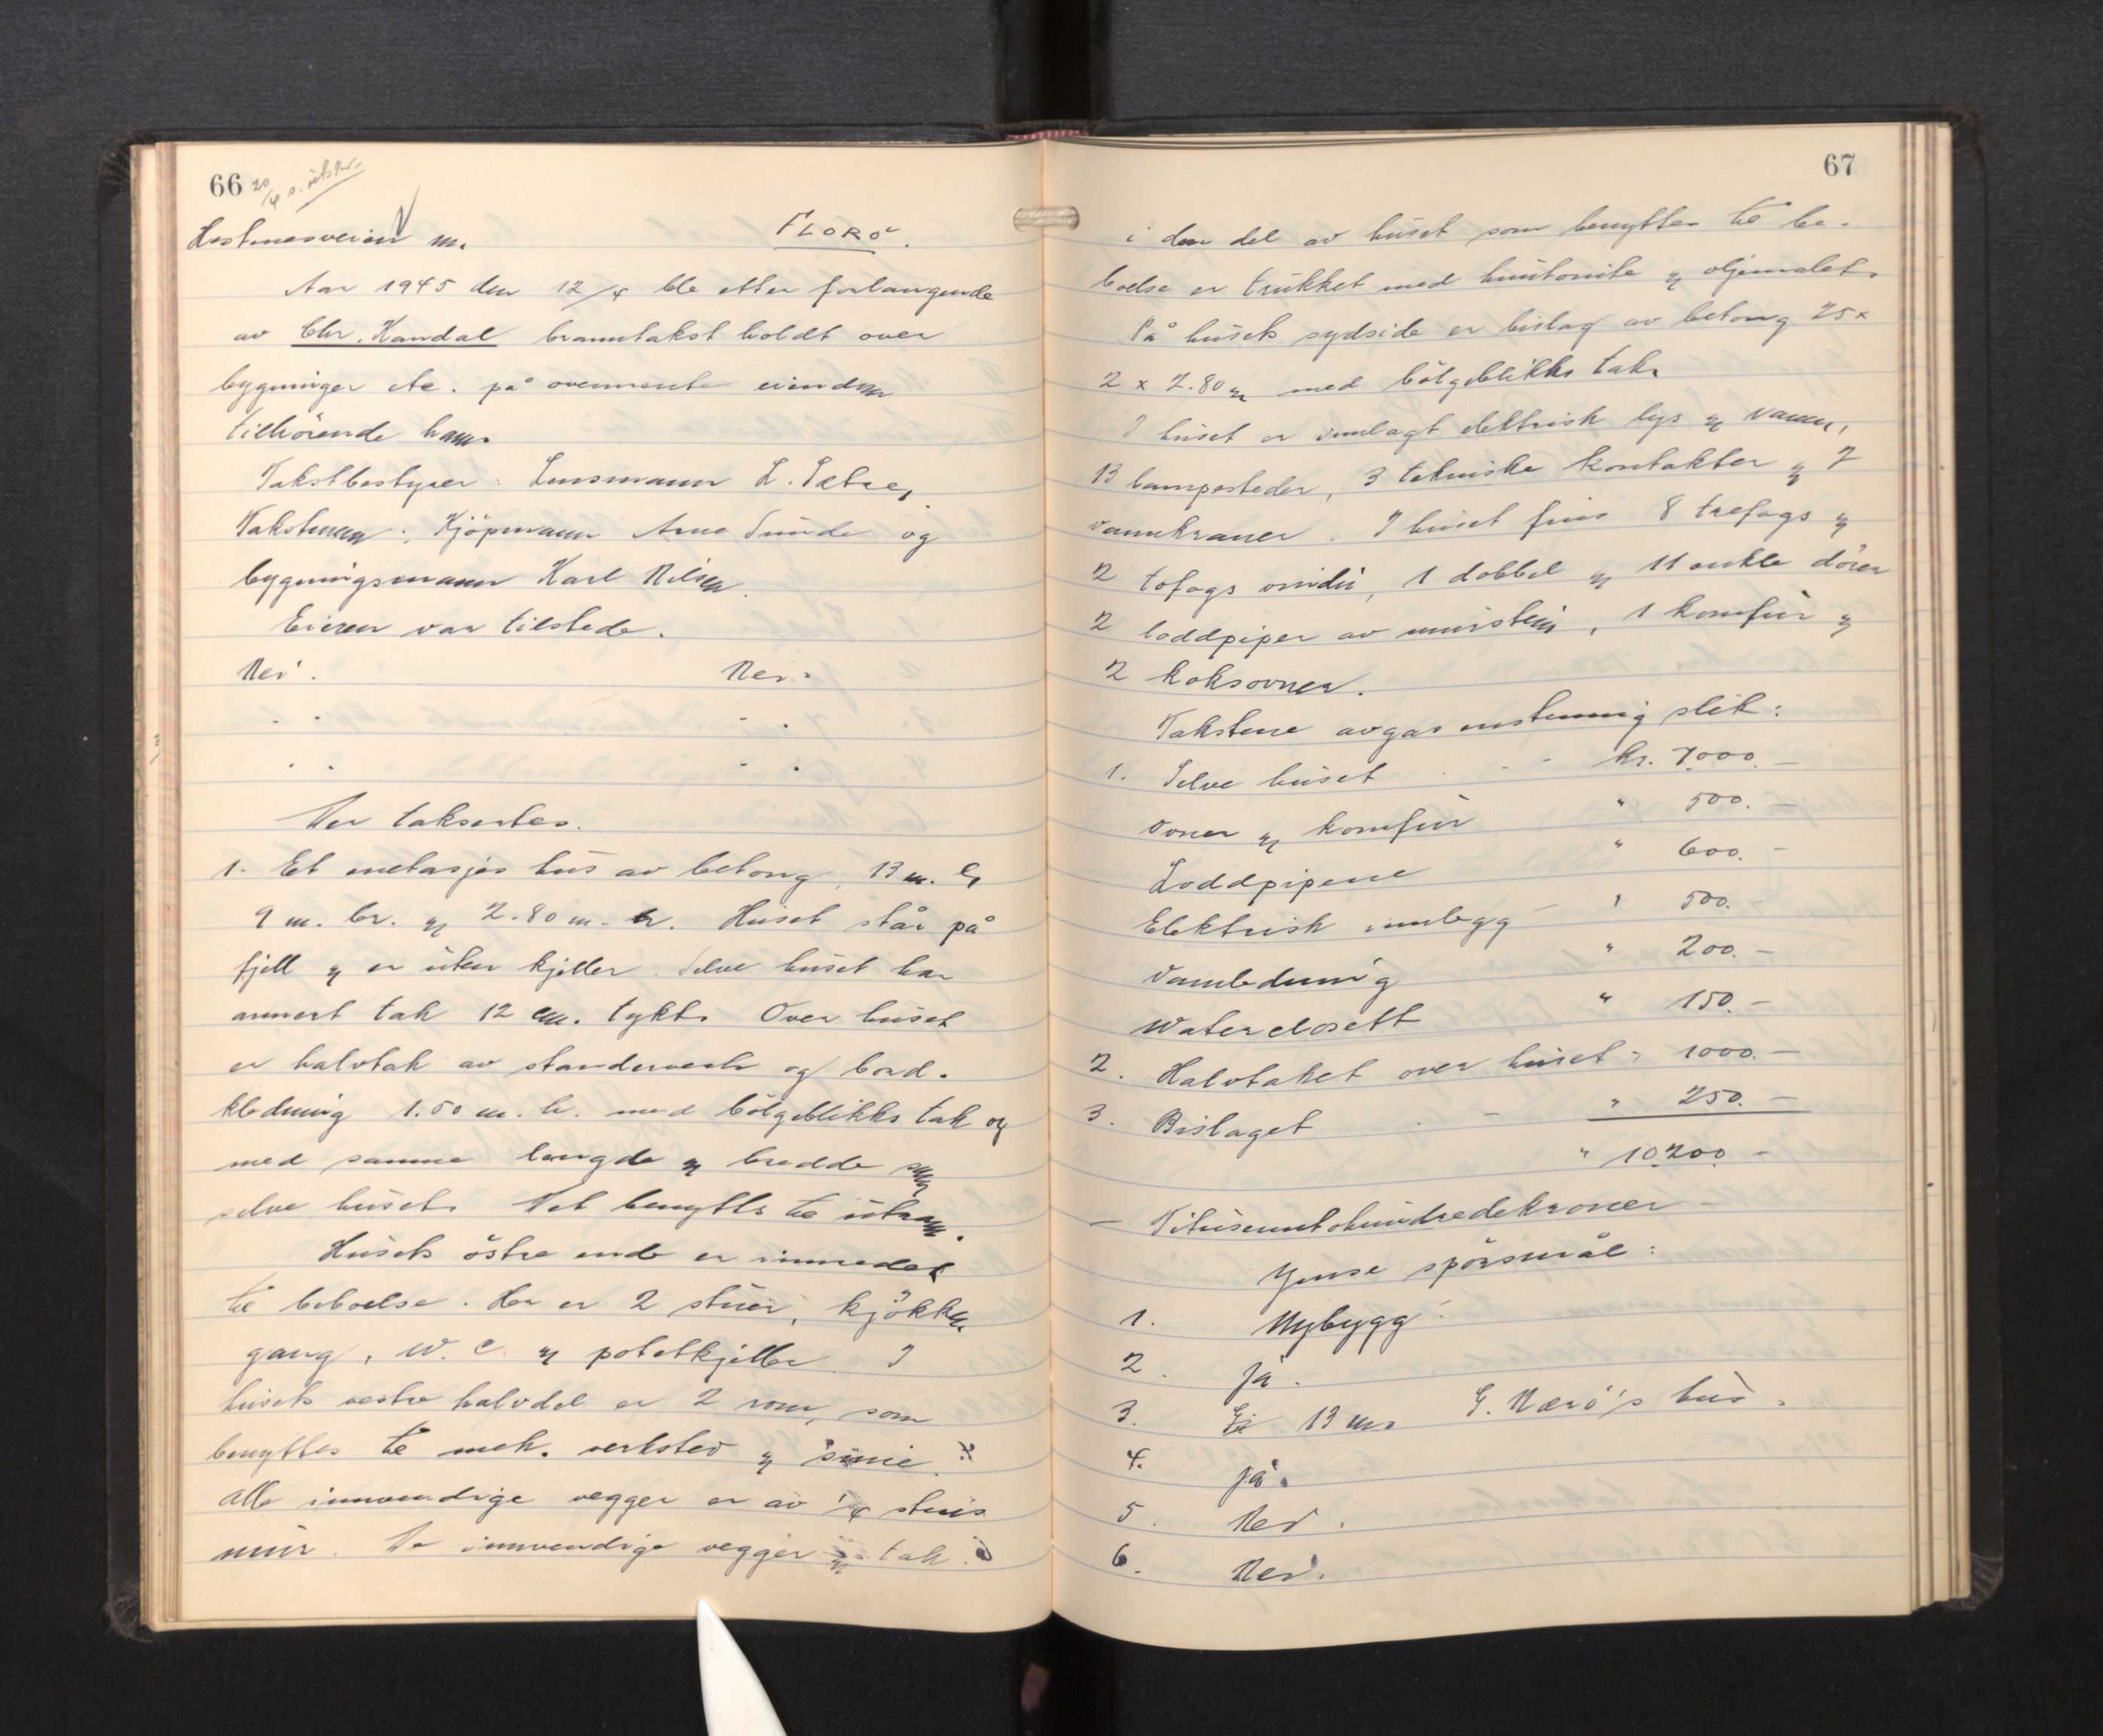 66 20/4 s. utskr.
Hestenesveien FLORÖ.
Aar 1945 den 12/4 ble etter forlangende
av Chr. Kandal branntakst holdt over
bygninger etc. på ovennevnte eiendom
tilhörende ham.
Takstbestyrer: Lensmann L. Sætre,
Takstmenn: Kjöpmann Arne Sunde og
bygningsmann Karl Nilsen.
Eieren var tilstede.
Nei. Nei.
" "
" "
Der takseres.
1. Et enetasjes hus av betong, 13 m. l,
9 m. br. og 2.80 m. h. Huset står på
fjell og er uten kjeller. Selve huset har
armert tak 12 cm. tykt. Over huset
er halvtak av standerverk og bord-
kledning 1.50 m. h. med bölgeblikks tak og
med samme lengde og bredde som
selve huset. Det benyttes til uterom.
Husets östre ende er innredet
til beboelse. Her er 2 stuer, kjökken
gang, W. C. og potetkjeller. I
husets vestre halvdel er 2 rom, som
benyttes til mek. verksted og smie.
Alle innvendige vegger er av 1/4 steins
mur. De innvendige vegger og tak
67
i den del av huset som benyttes til be-
boelse er trukket med huntonite og oljemalet.
På husets sydside er bislag av betong 25 x
2 x 2.80 m med bölgeblikks tak.
I huset er innlagt elektrisk lys og vann,
13 lampesteder, 3 tekniske kontakter og 7
vannkraner. I huset fins 8 trefags og
2 tofags vindu, 1 dobbel og 11 enkle dörer
2 loddpiper av murstein, 1 komfur og
2 koksovner.
Takstene avgas enstemmig slik:
1. Selve huset - - kr. 7000. -
Ovner og komfur " 500. -
Loddpipene " 600. -
Elektrisk innlegg - " 500. -
Vannledning " 200. -
Waterclosett " 150. -
2. Halvtaket over huset " 1000. -
3. Bislaget - - " 250. -
" 10200. -
- Titusentohundredekroner -
Ymse spörsmål:
1. Nybygg.
2. Ja.
3. 13 m. G. Nærö's hus.
4. Ja.
5. Nei.
6. Nei.